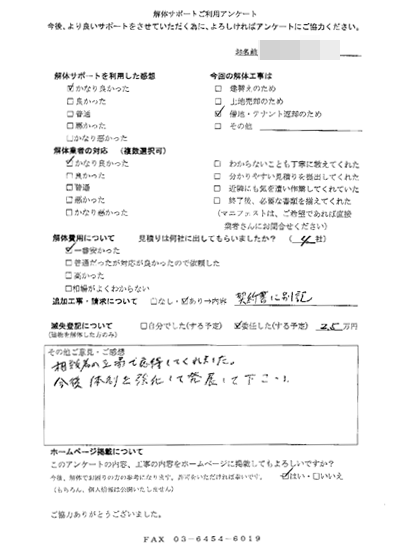 解体サポートご利用アンケート
今後、より良いサポートをさせていただく為に、よろしければアンケートにご協力ください。
お名前
解体サポートを利用した感想
☑かなり良かった
□良かった
□普通
□悪かった
□かなり悪かった
今回の解体工事は
□ 建替えのため
□ 土地売却のため
☑ 借地・テナント返却のため
□ その他
解体業者の対応 (複数選択可)
☑かなり良かった
□良かった
□普通
□悪かった
□かなり悪かった
□ わからないことも丁寧に教えてくれた
□ 分かりやすい見積りを提出してくれた
□ 近隣にも気を遣い作業してくれていた
□ 終了後、必要な書類を揃えてくれた
(マニフェストは、ご希望であれば直接
業者さんにお問合せください)
解体費用について 見積りは何社に出してもらいましたか? (4社)
☑一番安かった
□普通だったが対応が良かったので依頼した
□高かった
□相場がよくわからない
追加工事・請求について □なし・☑あり→内容 契約書に別記
滅失登記について □自分でした(する予定) ☑委任した(する予定) 2.5万円
(建物を解体した方のみ)
その他ご意見・ご感想
相談者の立場で応待してくれました。
今後 体制を強化して発展して下さい
ホームページ掲載について
このアンケートの内容、工事の内容をホームページに掲載してもよろしいですか?
今後、解体でお困りの方の参考になります。許可をいただければ幸いです。 ☑はい・□いいえ
(もちろん、個人情報は公開いたしません)
ご協力ありがとうございました。
FAX 03-6454-6019